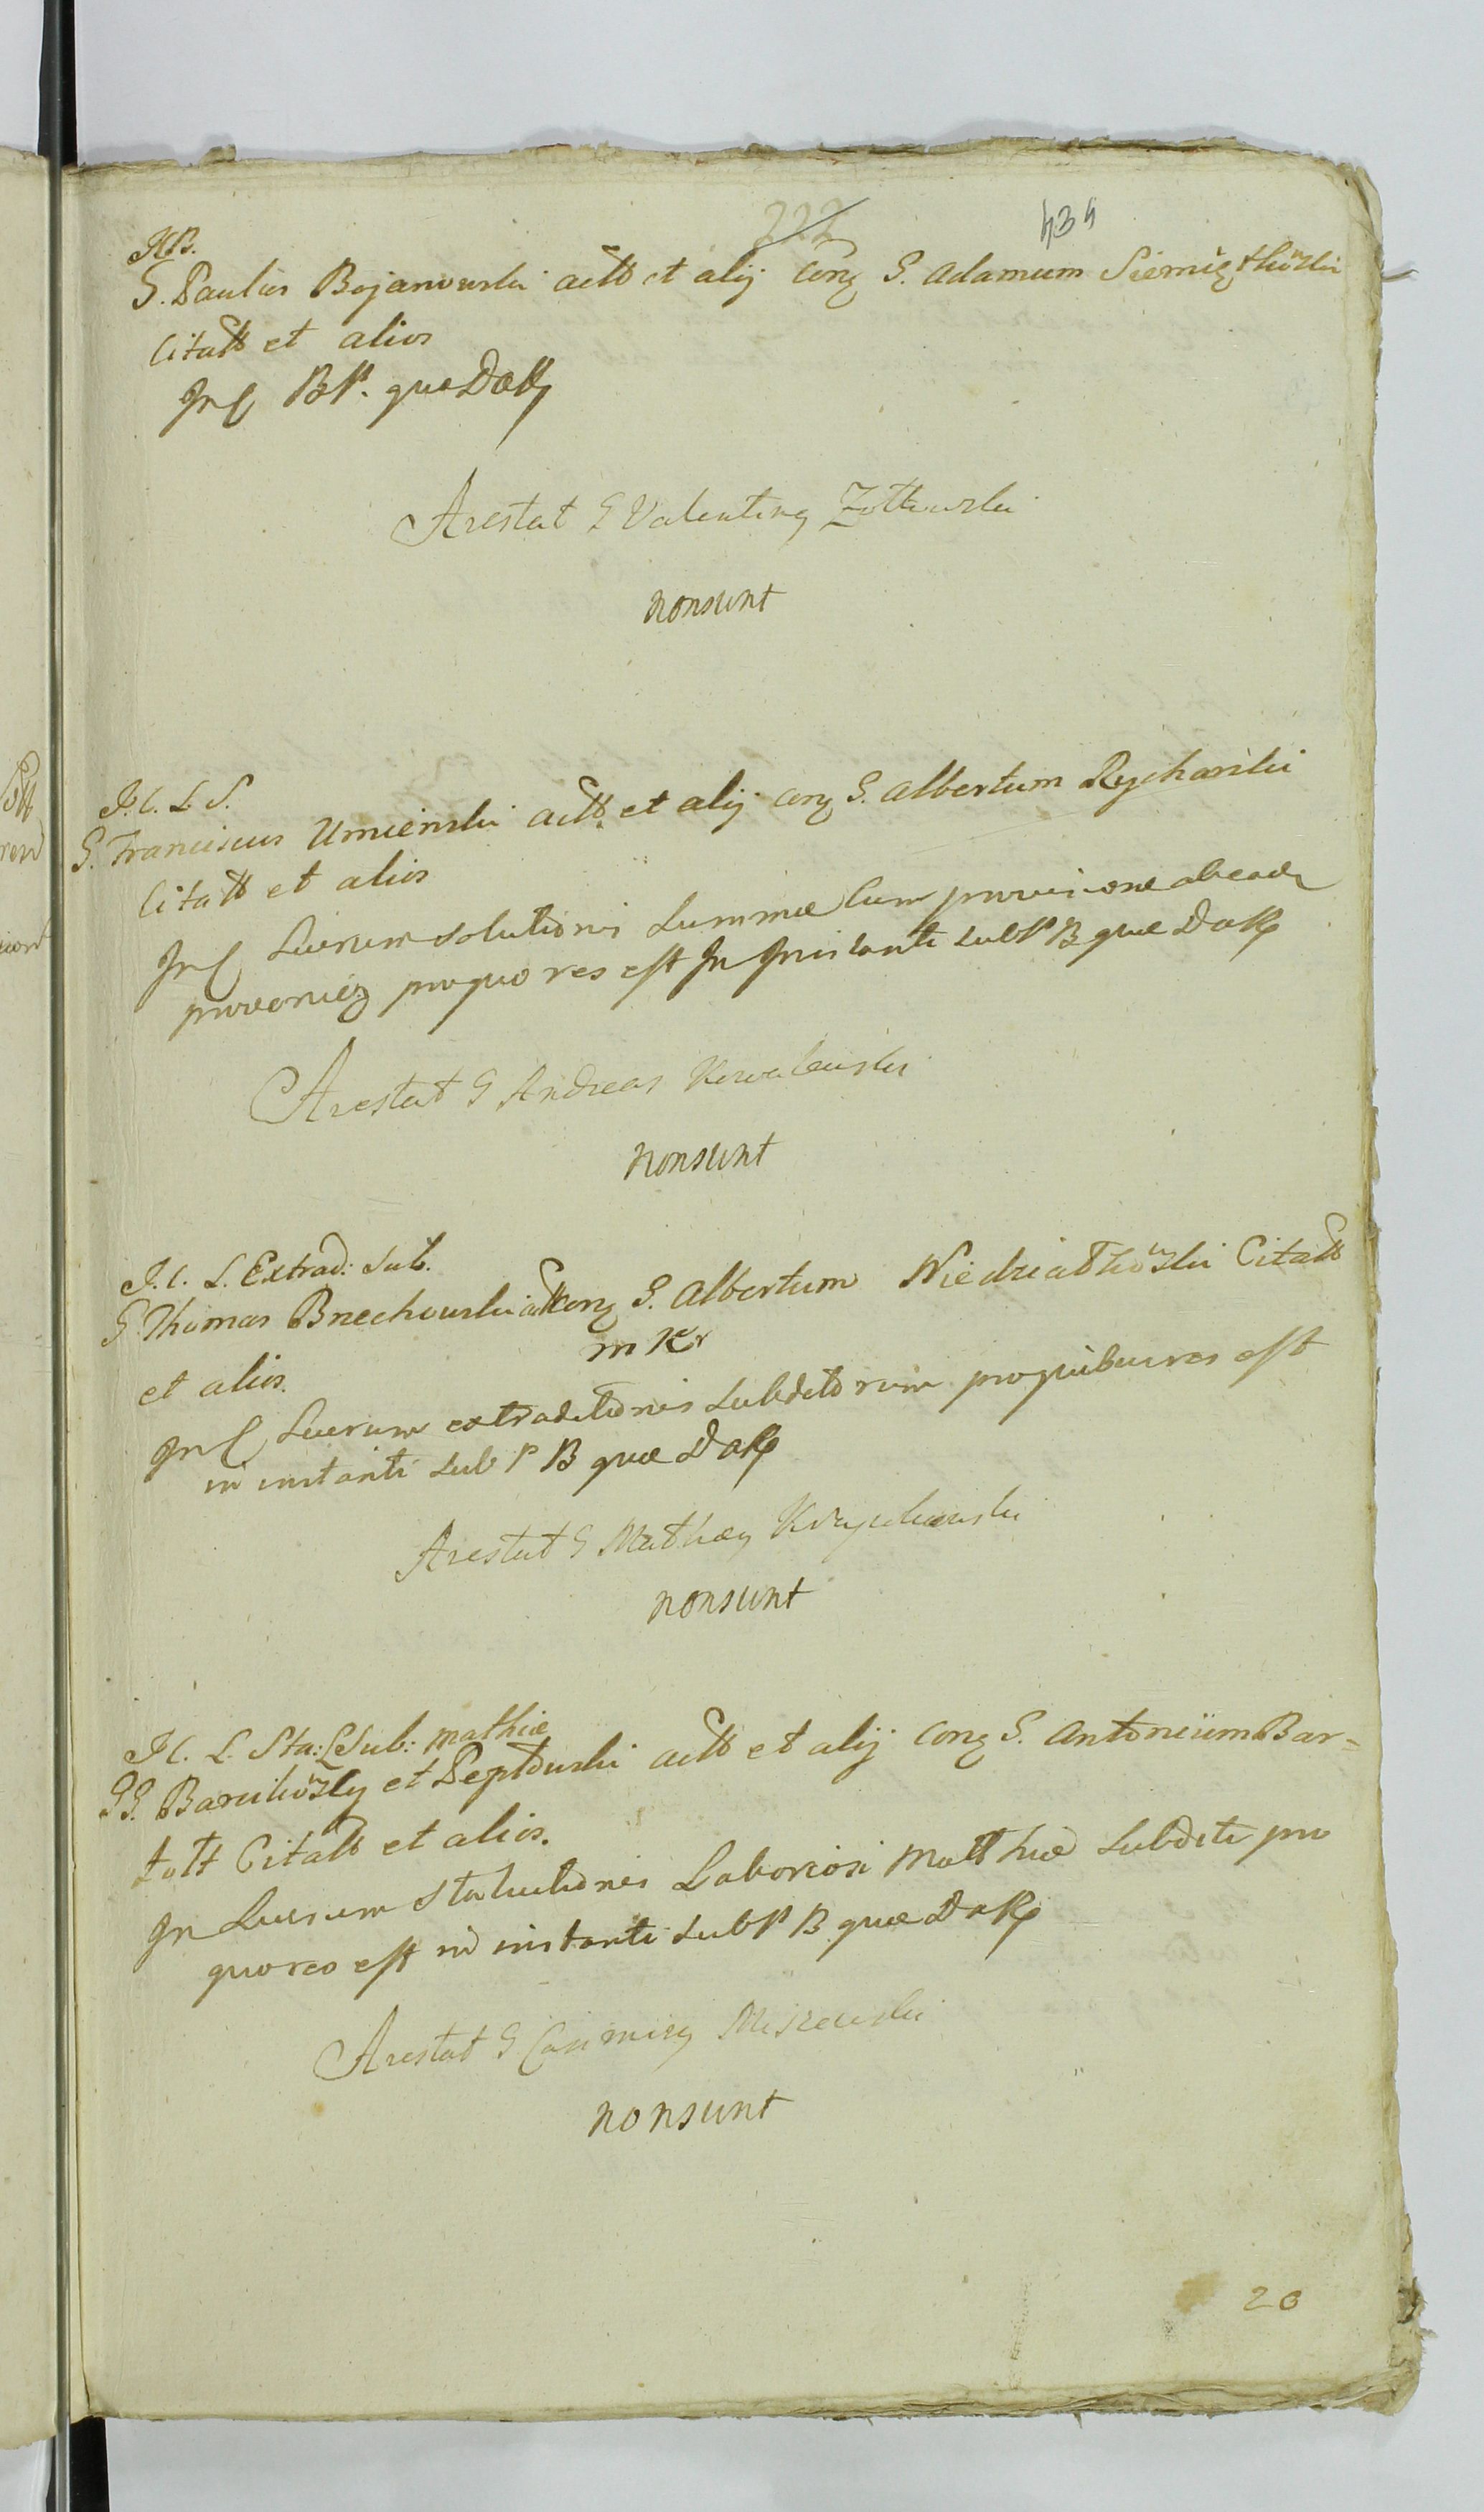 222 434
J.B.
G. Paulus Bojanowski actt et alij conz G. Adamum
Citatt et alios
In C BP. quae Datt
Arestat G Valentinq Zottowski
nonsunt
J.C. L S.
G. Franciscus Umienski actt et alij conz G. Albertum Rycharski
Citatt et alios
In C Lucrum solutionis summae cum provisione ab eadem
provenien proquo res est In Instanti sub P B quae Datt
Arestat G Andreas Kowalewski
nonsunt
J.C. L. Extrad: Sub.
G. Thomas Brzechowski actt conz G. Albertum Niedziatkowski Citatt
m Kr
et alios.
In C Lucrum extraditionis Subditorum proquibus res est
in instanti sub P B quae Datt
Arestat G Matheq
nonsunt
J C. L. Sta: L Sub: Mathiae
GG. Barcikowsky et Peptowski actt et alij conz G. Antonium Bar=
tott Citatt et alios.
In Lucrum Statuitionis Laboriosi Matthiae Subditi pro
quo res est in instanti sub P B quae Datt
Arestat G Casimirq Miszewski
nonsunt
20